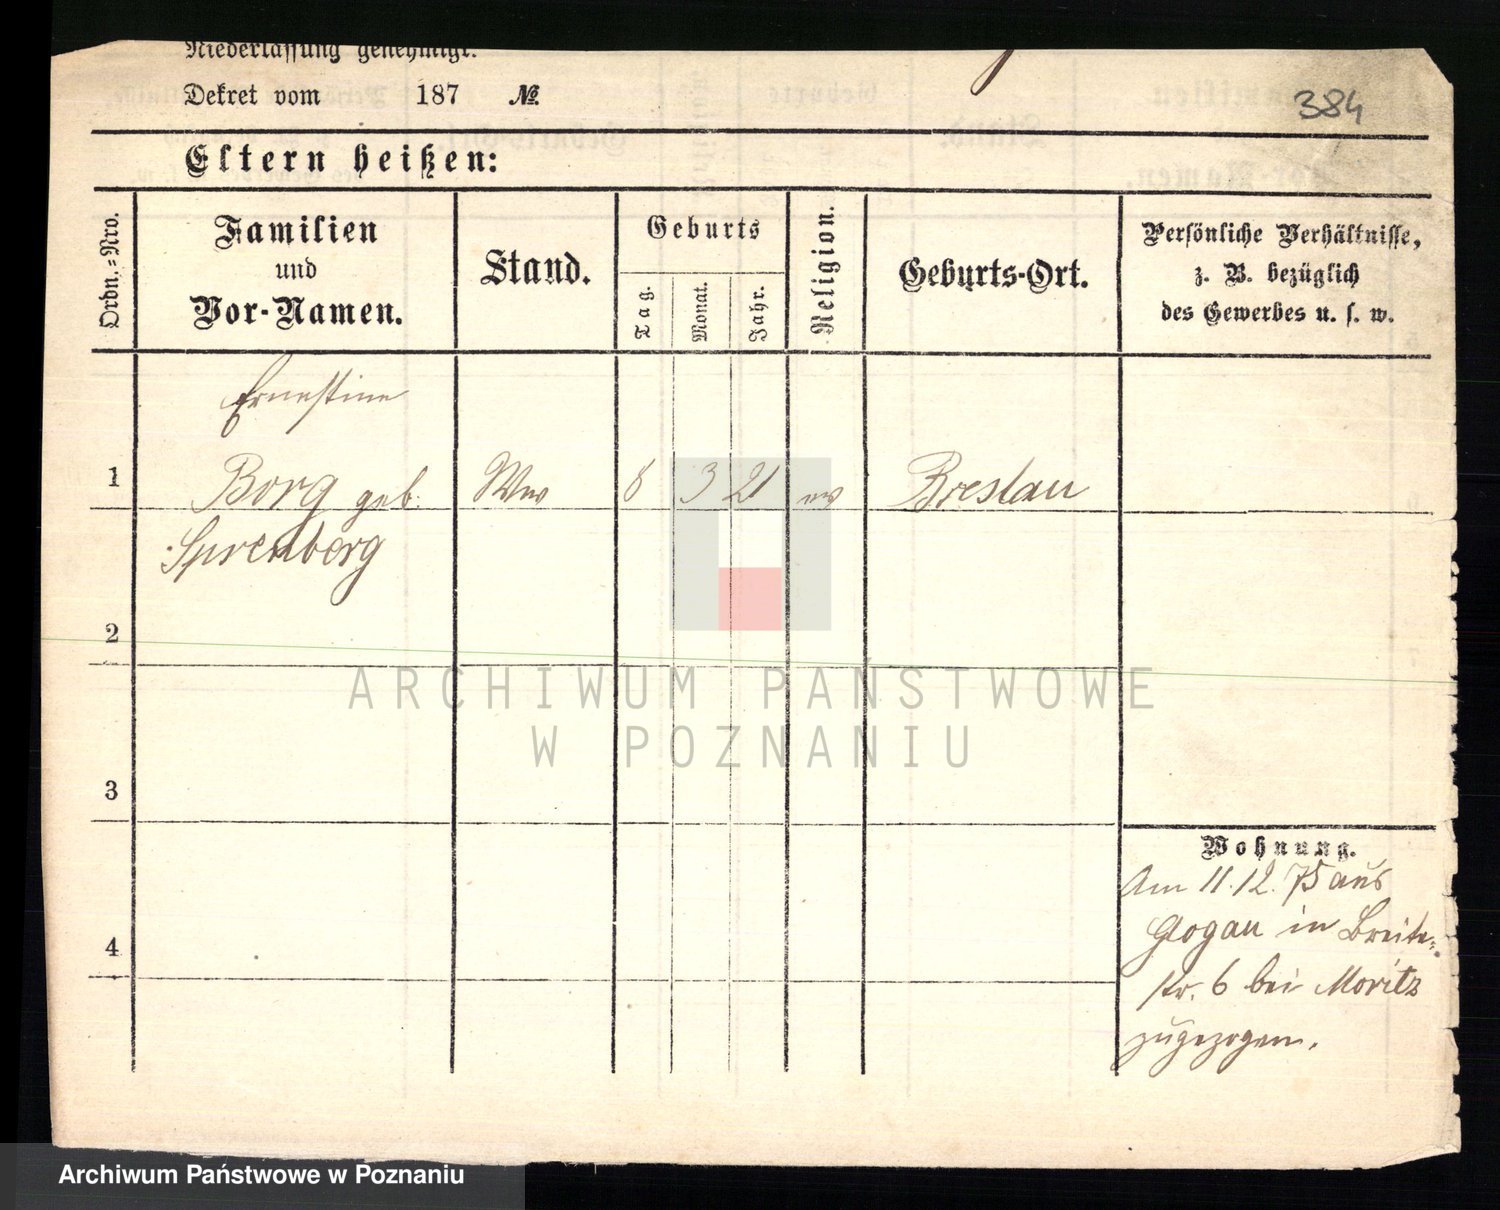 Niederlassung genehmigt.
Dekret vom 187 №
384
Eltern heißen:
Ordn.=Nro.
Familien
und
Vor-Namen.
Stand.
Geburts
Tag.
Monat.
Jahr.
Religion.
Geburts-Ort.
Persönliche Verhältnisse,
z. B. bezüglich
des Gewerbes u. s. w.
Ernestine
1 Borg geb. Ww 8 3 21 ev Breslau
Spremberg
2
3
4
Wohnung.
Am 11.12.75 aus
Glogau in Breite-
str. 6 bei Moritz
zugezogen.
ARCHIWUM PAŃSTWOWE
W POZNANIU
Archiwum Państwowe w Poznaniu